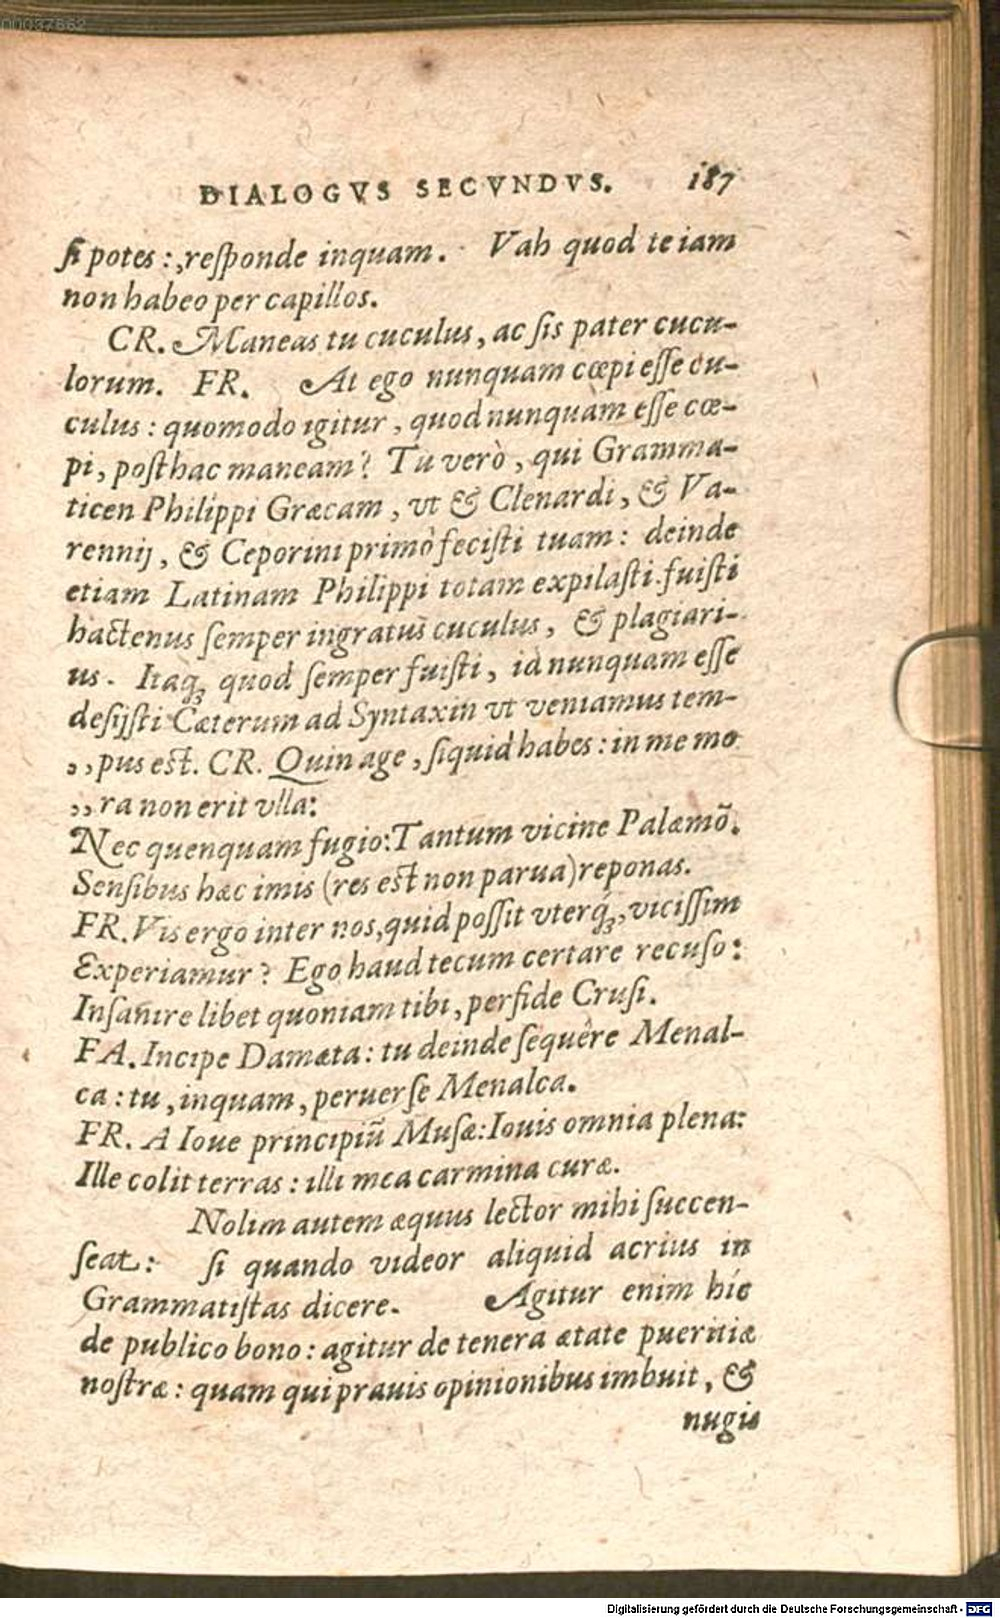 00037862
DIALOGVS SECVNDVS. 187
ſi potes:, reſponde inquam. Vah quod te iam
non habeo per capillos.
CR. Maneas tu cuculus, ac ſis pater cucu-
lorum. FR. At ego nunquam cœpi eſſe cu-
culus: quomodo igitur, quod nunquàm eſſe cœ-
pi, poſthac maneam? Tu verò, qui Gramma-
ticen Philippi Græcam, vt & Clenardi, & Va-
rennij, & Ceporini primò feciſti tuam: deinde
etiam Latinam Philippi totam expilaſti: fuiſti
hactenus ſemper ingratus cuculus, & plagiari-
us. Itaq; quod ſemper fuiſti, id nunquam eſſe
deſijſti Cæterum ad Syntaxin vt veniamus tem-
,,pus eſt. CR. Quin age, ſiquid habes: in me mo
,,ra non erit vlla:
Nec quenquam fugio: Tantum vicine Palæmõ.
Senſibus hæc imis (res eſt non parua) reponas.
FR. Vis ergo inter nos, quid poſſit vterq;, viciſſim
Experiamur? Ego haud tecum certare recuſo:
Inſanire libet quoniam tibi, perfide Cruſi.
FA. Incipe Damæta: tu deinde ſequêre Menal-
ca: tu, inquam, peruerſe Menalca.
FR. A Ioue principiũ Muſæ: Iouis omnia plena:
Ille colit terras: illi mea carmina curæ.
Nolim autem æquus lector mihi ſuccen-
ſeat: ſi quando videor aliquid acrius in
Grammatiſtas dicere. Agitur enim hîc
de publico bono: agitur de tenera ætate pueritiæ
noſtræ: quam qui prauis opinionibus imbuit, &
nugis
Digitalisierung gefördert durch die Deutsche Forschungsgemeinschaft - DFG